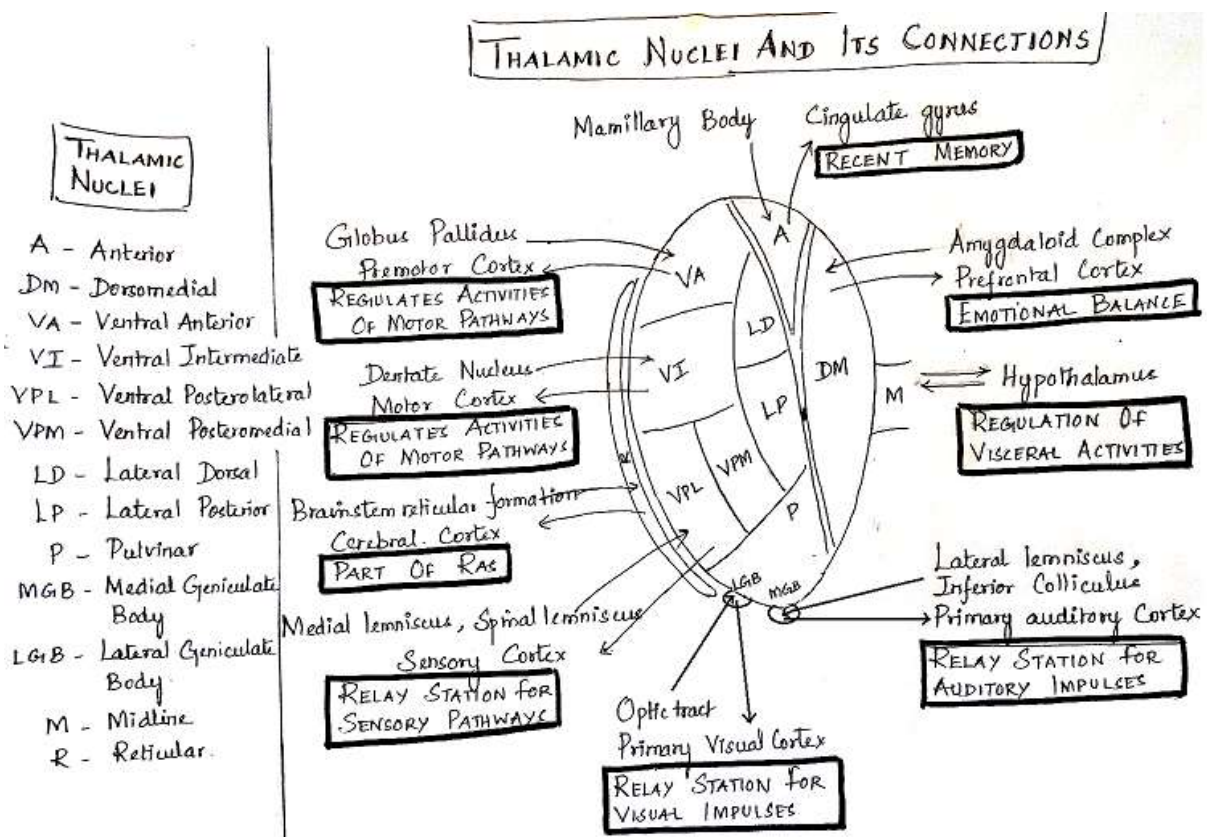 THALAMIC NUCLEI AND ITS CONNECTIONS
THALAMIC
NUCLEI
A - Anterior
DM - Dorsomedial
VA - Ventral Anterior
VI - Ventral Intermediate
VPL - Ventral Posterolateral
VPM - Ventral Posteromedial
LD - Lateral Dorsal
LP - Lateral Posterior
P - Pulvinar
MGB - Medial Geniculate
Body
LGB - Lateral Geniculate
Body
M - Midline
R - Reticular.
Mamillary Body
Cingulate gyrus
RECENT MEMORY
Globus Pallidus
Premotor Cortex
REGULATES ACTIVITIES
OF MOTOR PATHWAYS
Dentate Nucleus
Motor Cortex
REGULATES ACTIVITIES
OF MOTOR PATHWAYS
Brainstem reticular formation
Cerebral Cortex
PART OF RAS
Medial lemniscus, Spinal lemniscus
Sensory Cortex
RELAY STATION FOR
SENSORY PATHWAYS
A
VA
LD
VI
LP
DM
M
VPL
VPM
P
LGB
MGB
Amygdaloid Complex
Prefrontal Cortex
EMOTIONAL BALANCE
Hypothalamus
REGULATION OF
VISCERAL ACTIVITIES
Lateral lemniscus,
Inferior Colliculus
Primary auditory Cortex
RELAY STATION FOR
AUDITORY IMPULSES
Optic tract
Primary Visual Cortex
RELAY STATION FOR
VISUAL IMPULSES